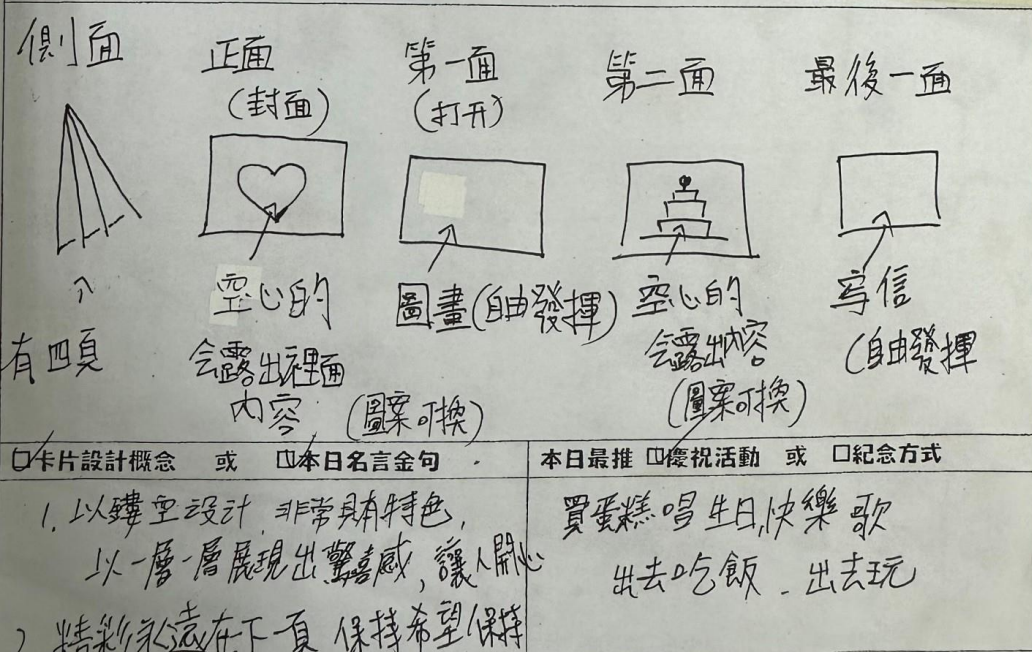 側面
正面
(封面)
第一面
(打开)
第二面
最後一面
有四頁
空心的
会露出裡面
內容
(圖案可換)
圖畫(自由發揮)
空心的
会露出內容
(圖案可換)
写信
(自由發揮
□卡片設計概念 或 □本日名言金句
本日最推 □慶祝活動 或 □紀念方式
1. 以鏤空设计,非常具有特色,
以一層一層展現出驚喜感,讓人開心
2 精彩永遠在下一頁 保持希望保持
買蛋糕唱生日快樂歌
出去吃飯、出去玩